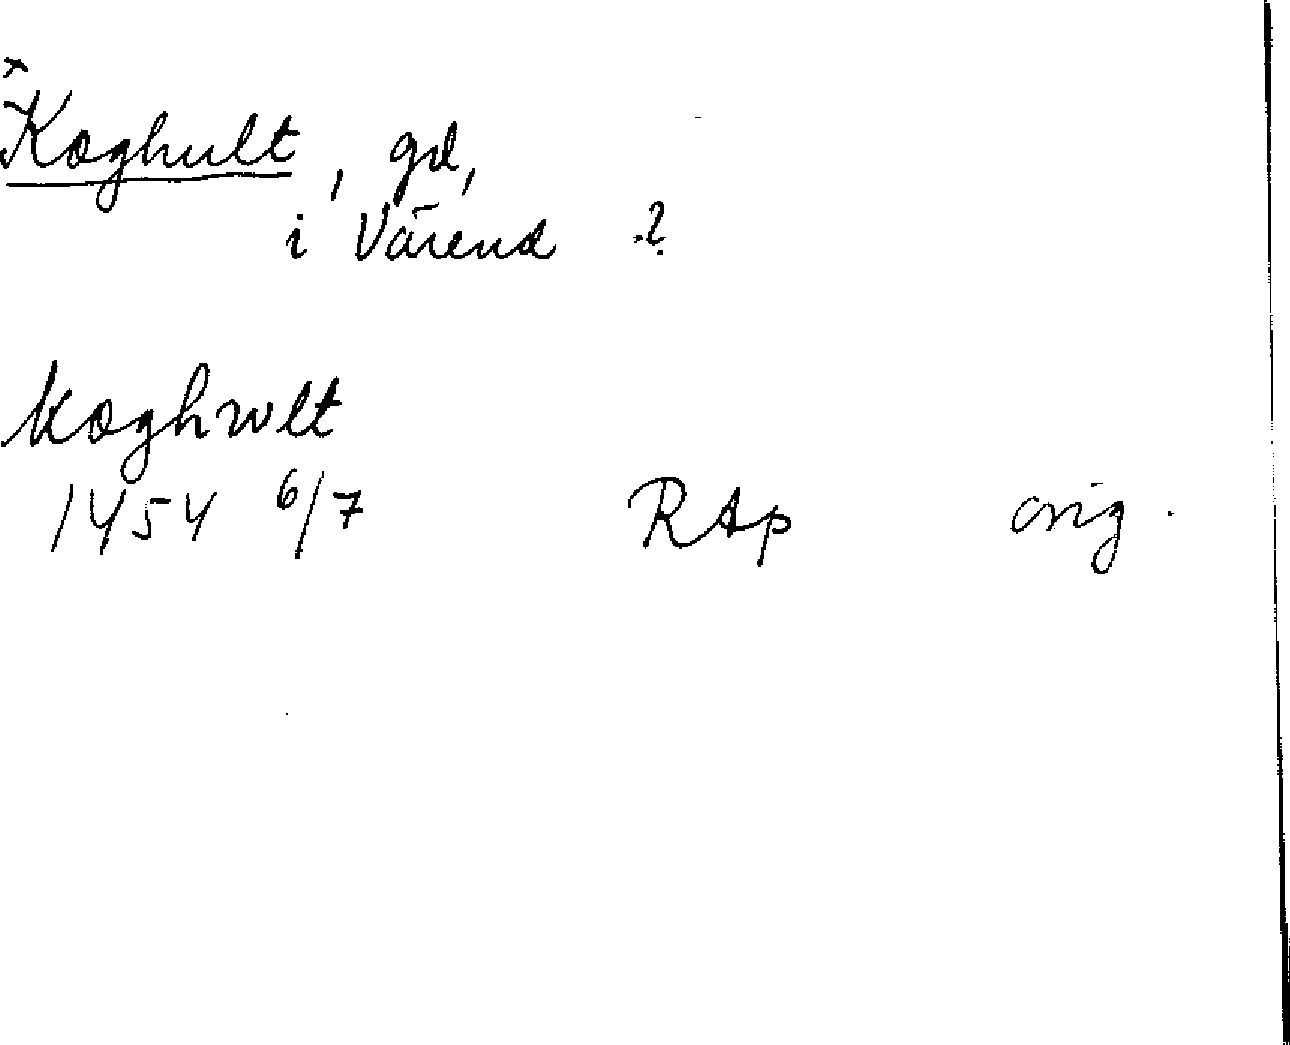 ×
Kæghult, gd,
i Värend .?
kæghwlt
1454 6/7 RAp orig.